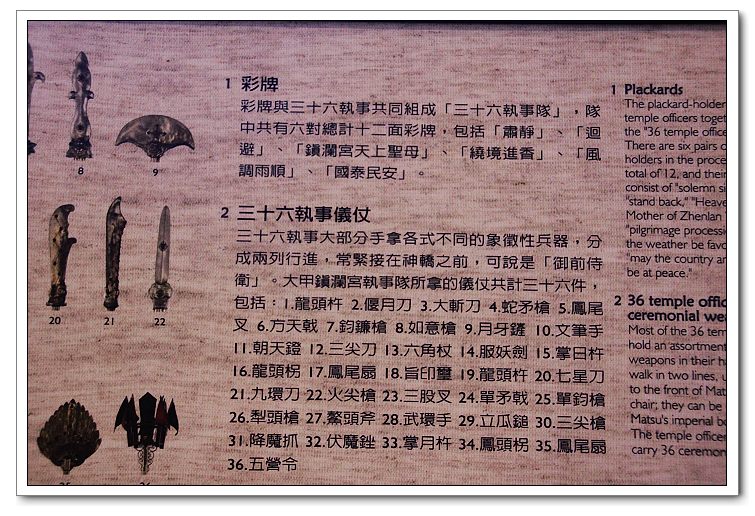 1 彩牌
彩牌與三十六執事共同組成「三十六執事隊」，隊
中共有六對總計十二面彩牌，包括「肅靜」、「迴
避」、「鎮瀾宮天上聖母」、「繞境進香」、「風
調雨順」、「國泰民安」。
2 三十六執事儀仗
三十六執事大部分手拿各式不同的象徵性兵器，分
成兩列行進，常緊接在神轎之前，可說是「御前侍
衛」。大甲鎮瀾宮執事隊所拿的儀仗共計三十六件，
包括：1.龍頭杵 2.偃月刀 3.大斬刀 4.蛇矛槍 5.鳳尾
叉 6.方天戟 7.鈎鐮槍 8.如意槍 9.月牙鏟 10.文筆手
11.朝天鐙 12.三尖刀 13.六角杖 14.服妖劍 15.掌日杵
16.龍頭柺 17.鳳尾扇 18.旨印璽 19.龍頭杵 20.七星刀
21.九環刀 22.火尖槍 23.三股叉 24.單矛戟 25.單鈎槍
26.犁頭槍 27.鰲頭斧 28.武環手 29.立瓜鎚 30.三尖槍
31.降魔抓 32.伏魔銼 33.掌月杵 34.鳳頭柺 35.鳳尾扇
36.五營令
1 Plackards
The plackard-holder
temple officers toget
the "36 temple office
There are six pairs o
holders in the proce
total of 12, and their
consist of "solemn si
"stand back," "Heave
Mother of Zhenlan
"pilgrimage processi
the weather be favo
"may the country an
be at peace."
2 36 temple offic
ceremonial wea
Most of the 36 tem
hold an assortment
weapons in their h
walk in two lines, u
to the front of Mat
chair; they can be
Matsu's imperial bo
The temple officer
carry 36 ceremon
8
9
20
21
22